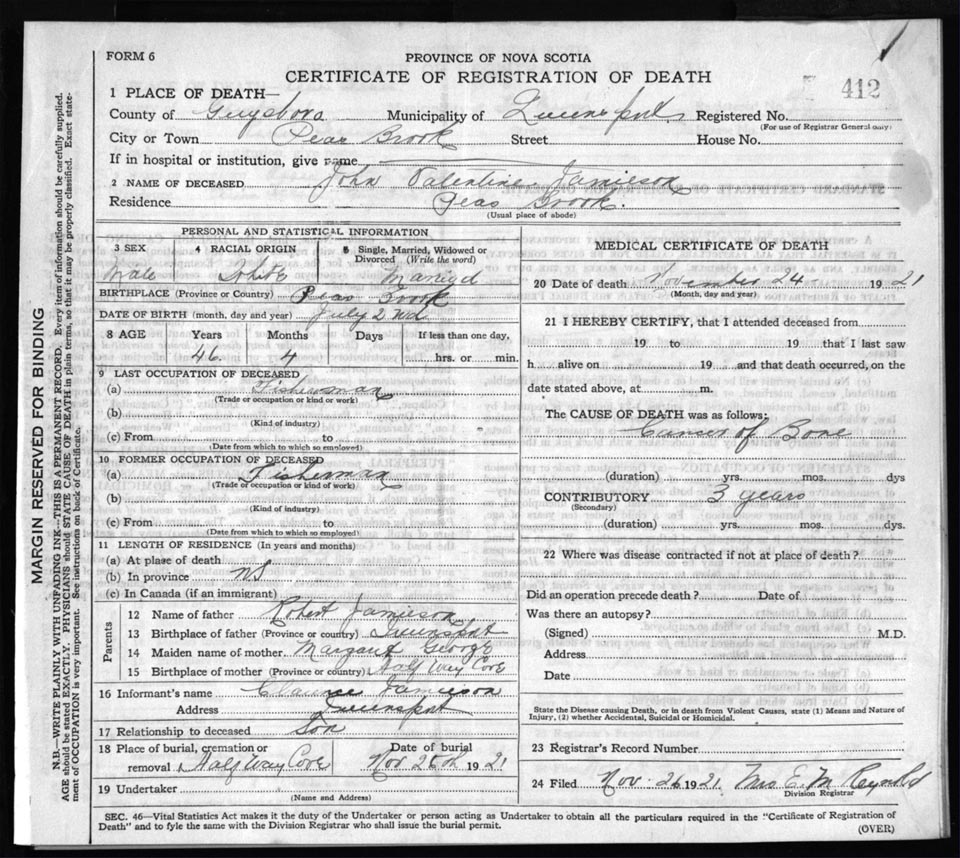 FORM 6
PROVINCE OF NOVA SCOTIA
CERTIFICATE OF REGISTRATION OF DEATH
412
1 PLACE OF DEATH—
County of Guysboro Municipality of Queensport Registered No.
(For use of Registrar General only)
City or Town Peas Brook Street House No.
If in hospital or institution, give name
2 NAME OF DECEASED John Valentine Jamieson
Residence Peas Brook.
(Usual place of abode)
PERSONAL AND STATISTICAL INFORMATION
3 SEX 4 RACIAL ORIGIN 5 Single, Married, Widowed or Divorced (Write the word)
Male White Married
BIRTHPLACE (Province or Country) Peas Brook
DATE OF BIRTH (month, day and year) July 2nd
8 AGE Years Months Days If less than one day,
46. 4 hrs. or min.
9 LAST OCCUPATION OF DECEASED
(a) Fisherman
(Trade or occupation or kind or work)
(b)
(Kind of industry)
(c) From to
(Date from which to which so employed)
10 FORMER OCCUPATION OF DECEASED
(a) Fisherman
(Trade or occupation or kind of work)
(b)
(Kind of industry)
(c) From to
(Date from which to which so employed)
11 LENGTH OF RESIDENCE (In years and months)
(a) At place of death
(b) In province NS
(c) In Canada (if an immigrant)
Parents
12 Name of father Robert Jamieson
13 Birthplace of father (Province or country) Queensport
14 Maiden name of mother Margaret George
15 Birthplace of mother (Province or country) Half Way Cove
16 Informant's name Clarence Jamieson
Address Queensport
17 Relationship to deceased Son
18 Place of burial, cremation or removal Half Way Cove
Date of burial Nov 19 21
19 Undertaker
(Name and Address)
MEDICAL CERTIFICATE OF DEATH
20 Date of death November 24 19 21
(Month, day and year)
21 I HEREBY CERTIFY, that I attended deceased from
19 to 19 that I last saw
h alive on 19 and that death occurred, on the
date stated above, at m.
The CAUSE OF DEATH was as follows:
Cancer of Bone
(duration) yrs. mos. dys
CONTRIBUTORY 3 years
(Secondary)
(duration) yrs. mos. dys.
22 Where was disease contracted if not at place of death?
Did an operation precede death? Date of
Was there an autopsy?
(Signed) M.D.
Address
Date
State the Disease causing Death, or in death from Violent Causes, state (1) Means and Nature of
Injury, (2) whether Accidental, Suicidal or Homicidal.
23 Registrar's Record Number
24 Filed Nov. 26 1921 Mrs E. M. Reynold
Division Registrar
SEC. 46—Vital Statistics Act makes it the duty of the Undertaker or person acting as Undertaker to obtain all the particulars required in the "Certificate of Registration of
Death" and to fyle the same with the Division Registrar who shall issue the burial permit.
(OVER)
MARGIN RESERVED FOR BINDING
N.B.—WRITE PLAINLY WITH UNFADING INK—THIS IS A PERMANENT RECORD. Every item of information should be carefully supplied.
AGE should be stated EXACTLY. PHYSICIANS should STATE CAUSE OF DEATH in plain terms, so that it may be properly classified. Exact state-
ment of OCCUPATION is very important. See instructions on back of Certificate.